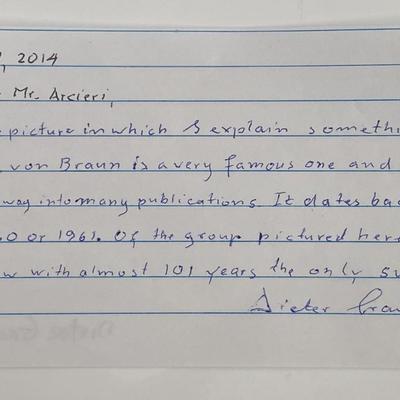 , 2014
Mr. Arcieri,
picture in which I explain someth
von Braun is a very famous one and
way into many publications. It dates ba
0 or 1961. Of the group pictured her
w with almost 101 years the only su
Dieter Gra